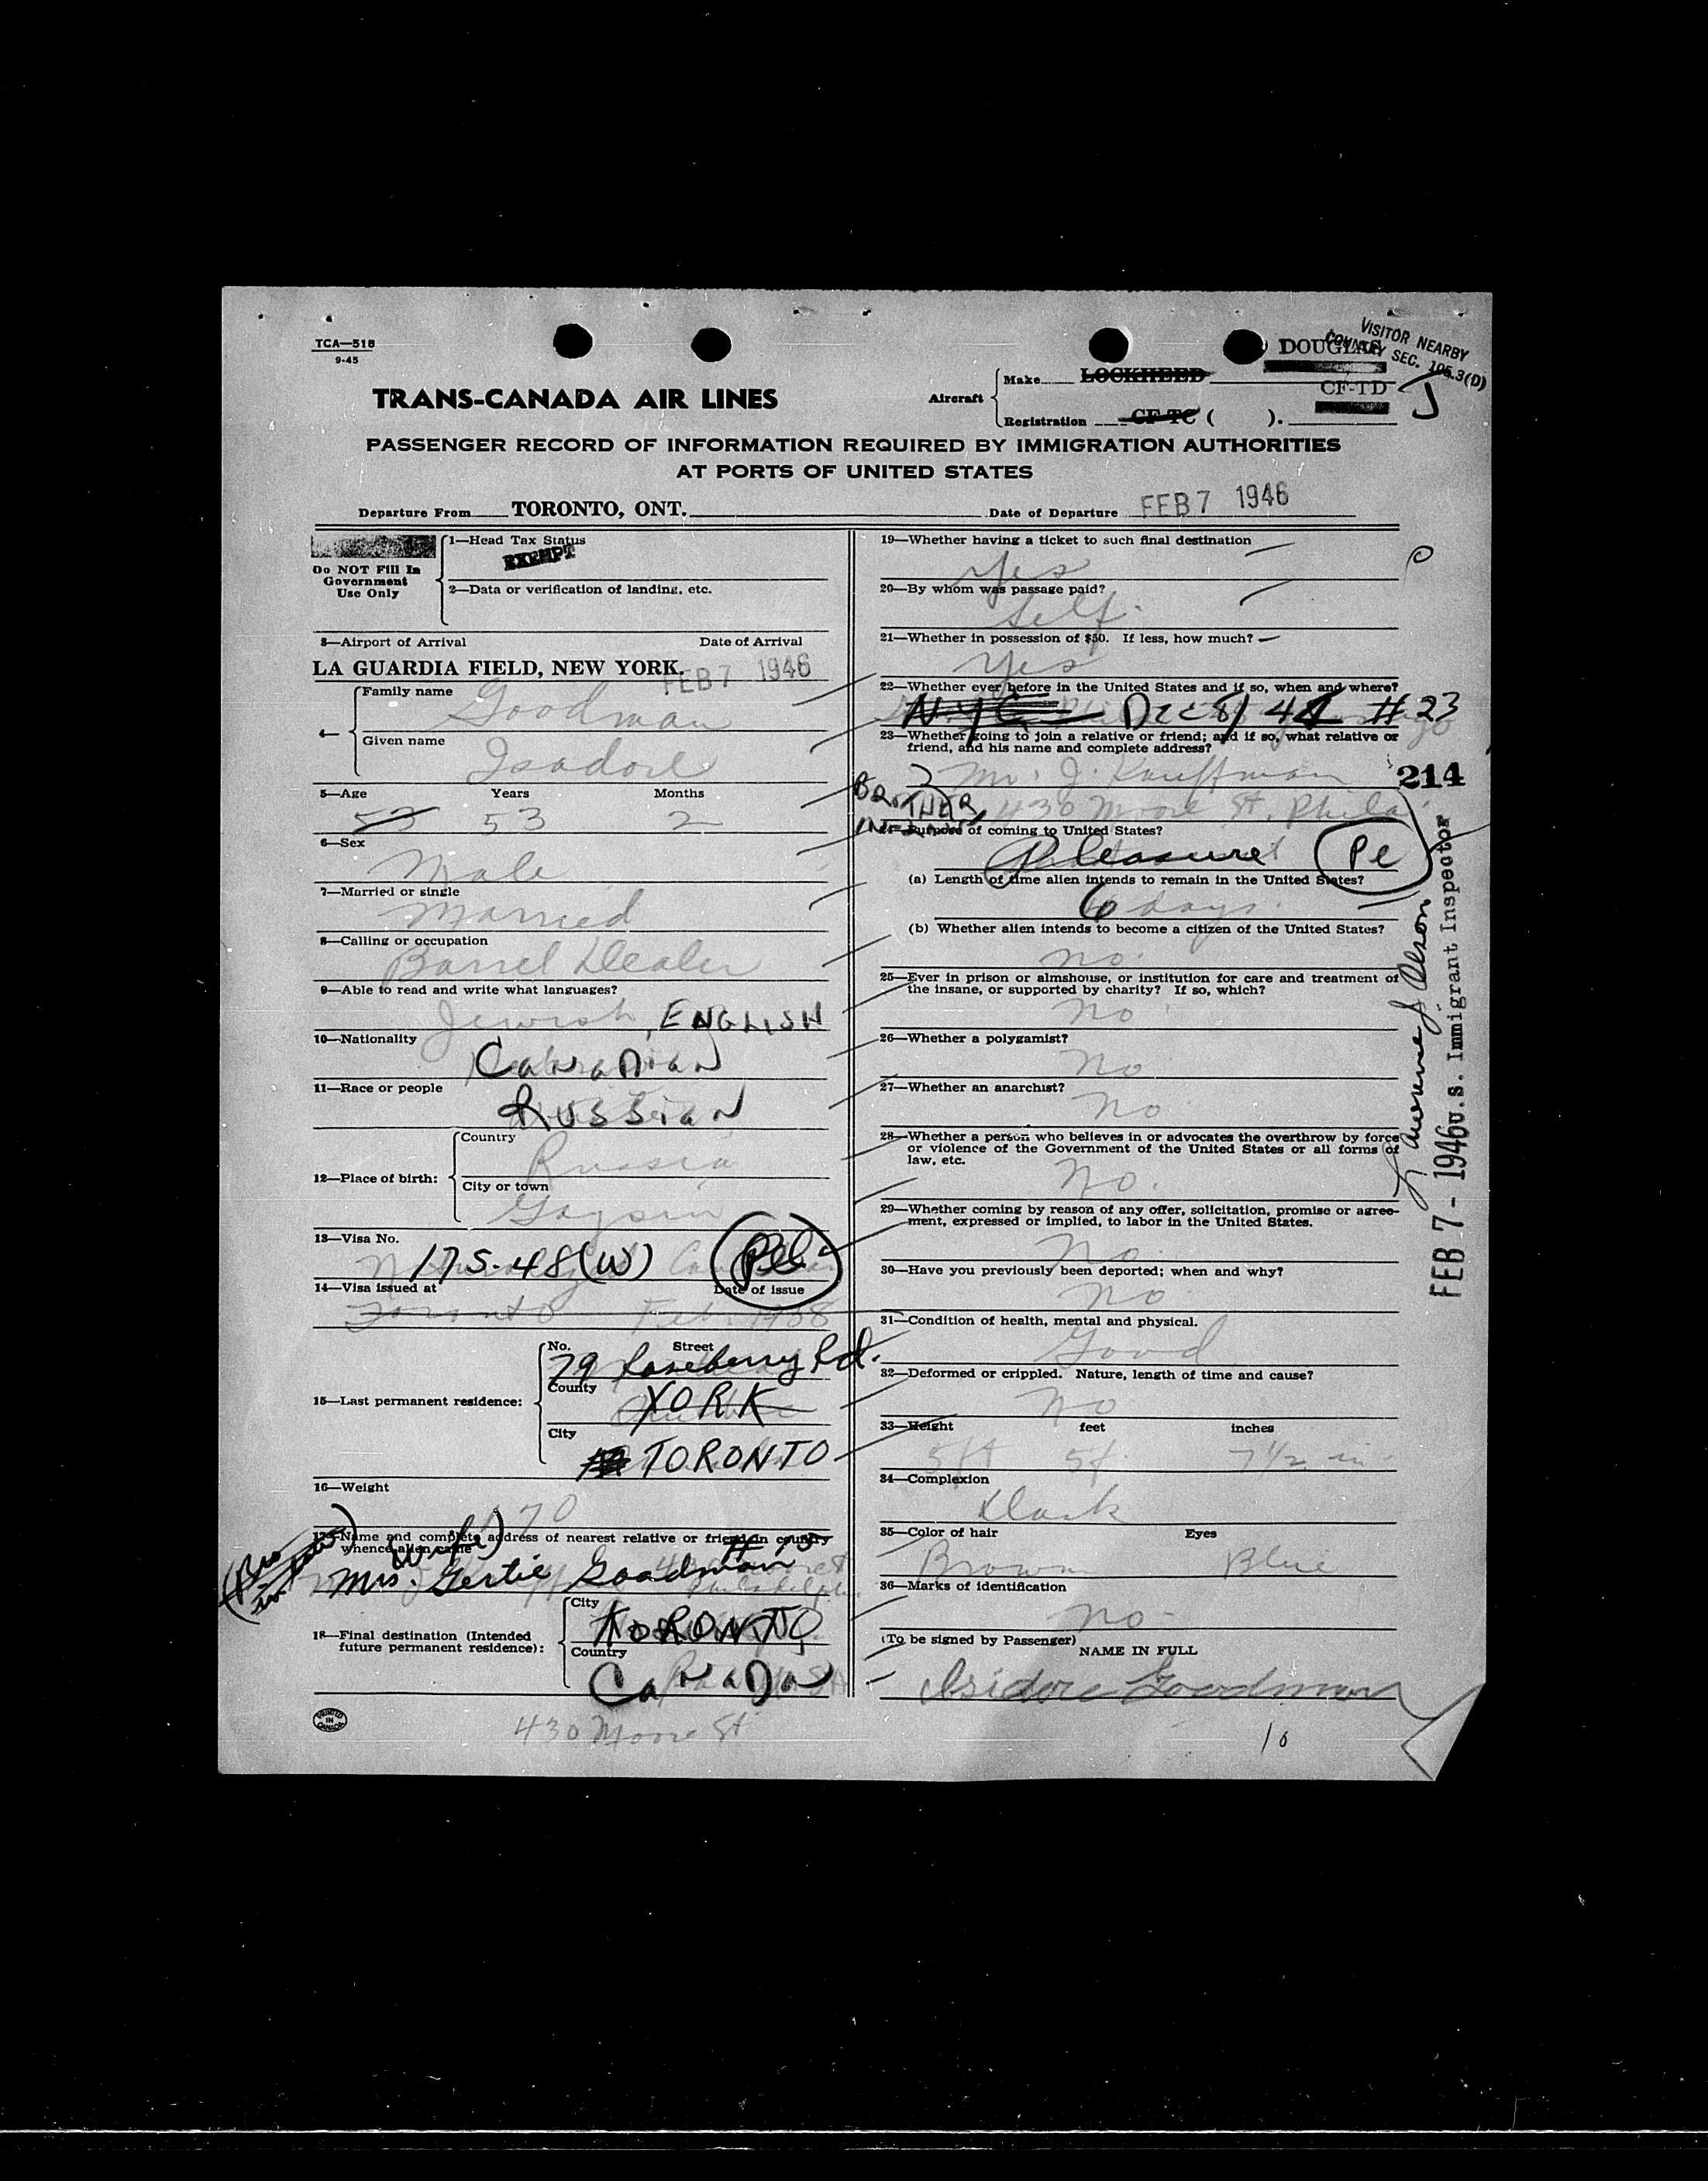 TCA—518
9-45
VISITOR NEARBY
COUNTRY SEC. 105.3(D)
DOUGLAS
TRANS-CANADA AIR LINES
Aircraft
Make LOCKHEED
CF-TD
Registration CF-TC ( ).
PASSENGER RECORD OF INFORMATION REQUIRED BY IMMIGRATION AUTHORITIES
AT PORTS OF UNITED STATES
Departure From TORONTO, ONT.
Date of Departure FEB 7 1946
Do NOT Fill In
Government
Use Only
1—Head Tax Status
EXEMPT
2—Data or verification of landing, etc.
3—Airport of Arrival Date of Arrival
LA GUARDIA FIELD, NEW YORK. FEB 7 1946
4—
Family name
Goodman
Given name
Isadore
5—Age Years Months
53 53 2
6—Sex
Male
7—Married or single
Married
8—Calling or occupation
Barrel Dealer
9—Able to read and write what languages?
Jewish, ENGLISH
10—Nationality
Canadian
11—Race or people
Russian
12—Place of birth:
Country
Russia
City or town
Gaysin
13—Visa No.
175-48(W)
14—Visa issued at Date of issue
Toronto Feb. 1938
15—Last permanent residence:
No. Street
79 Roseberry Rd.
County
YORK
City
TORONTO
16—Weight
170
17—Name and complete address of nearest relative or friend in country
whence alien came
(Wife) # 15
Mrs. Gertie Goodman
18—Final destination (Intended
future permanent residence):
City
TORONTO
Country
Canada
PRINTED
IN
CANADA
430 Moore St
19—Whether having a ticket to such final destination
Yes
20—By whom was passage paid?
Self.
21—Whether in possession of $50. If less, how much?
Yes
22—Whether ever before in the United States and if so, when and where?
NYC Dec 8/44 #23
23—Whether going to join a relative or friend; and if so, what relative or
friend, and his name and complete address?
Mr. J. Kauffman
214
BROTHER
430 Moore St. Phila.
IN-LAW
24—Purpose of coming to United States?
Pleasure Pl
(a) Length of time alien intends to remain in the United States?
6 days.
(b) Whether alien intends to become a citizen of the United States?
no.
25—Ever in prison or almshouse, or institution for care and treatment of
the insane, or supported by charity? If so, which?
No
26—Whether a polygamist?
No
27—Whether an anarchist?
No
28—Whether a person who believes in or advocates the overthrow by force
or violence of the Government of the United States or all forms of
law, etc.
No.
29—Whether coming by reason of any offer, solicitation, promise or agree-
ment, expressed or implied, to labor in the United States.
No.
30—Have you previously been deported; when and why?
No
31—Condition of health, mental and physical.
Good
32—Deformed or crippled. Nature, length of time and cause?
No
33—Height feet inches
5 ft 5 f. 7 1/2 in
34—Complexion
Dark
35—Color of hair Eyes
Brown Blue
36—Marks of identification
no-
(To be signed by Passenger)
NAME IN FULL
Isidore Goodman
10
Lawrence J. Olson
FEB 7 - 1946 U.S. Immigrant Inspector